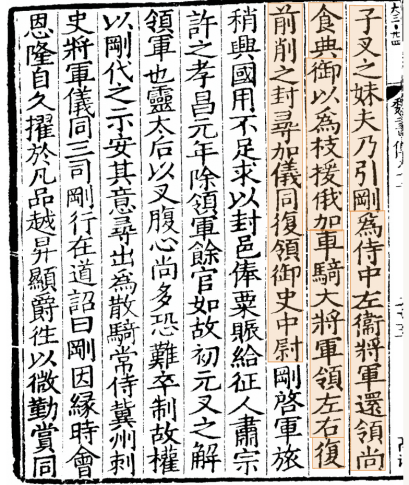 子叉之妹夫乃引剛爲侍中左衞將軍還領尚
食典御以爲枝援俄加車騎大將軍領左右復
前削之封尋加儀同復領御史中尉剛啓軍旅
稍興國用不足求以封邑俸粟賑給征人肅宗
許之孝昌元年除領軍餘官如故初元叉之解
領軍也靈太后以叉腹心尚多恐難卒制故權
以剛代之示安其意尋出爲散騎常侍冀州刺
史將軍儀同三司剛行在道詔曰剛因緣時會
恩隆自久擢於凡品越昇顯爵徃以微勤賞同